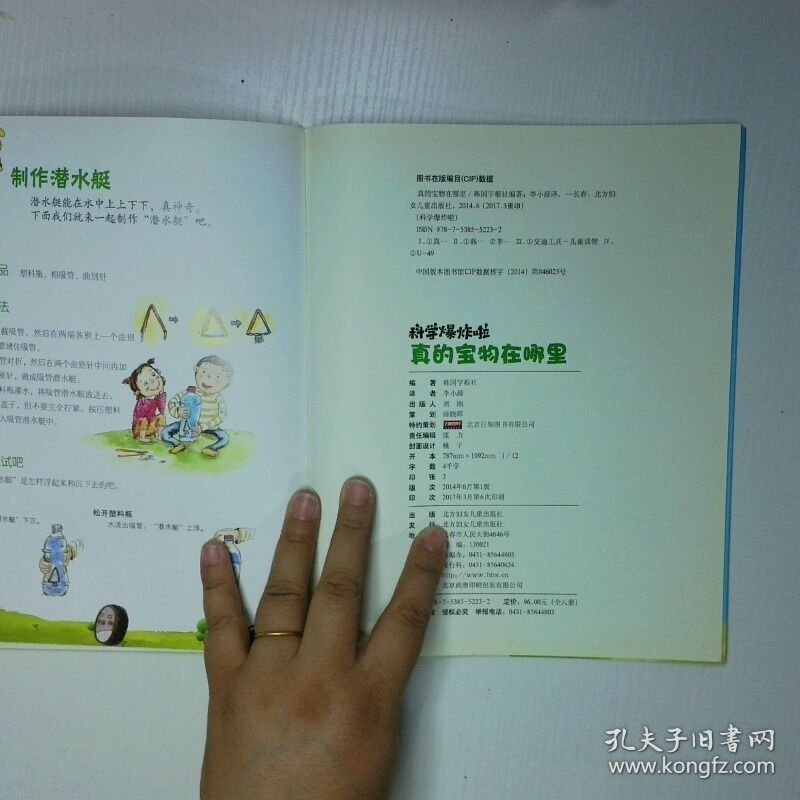 制作潜水艇
潜水艇能在水中上上下下，真神奇。
下面我们就来一起制作“潜水艇”吧。
品 塑料瓶、粗吸管、曲别针
法
裁吸管，然后在两端各别上一个曲别
要堵住吸管。
管对折，然后在两个曲别针中间再加
别针，做成吸管潜水艇。
料瓶灌水，将吸管潜水艇放进去，
盖子，但不要完全拧紧。按压塑料
入吸管潜水艇中。
试吧
水艇”是怎样浮起来和沉下去的吧。
水艇”下沉。
松开塑料瓶
水流出吸管，“潜水艇”上浮。
图书在版编目(CIP)数据
真的宝物在哪里／韩国字根社编著；李小晨译．—长春：北方妇
女儿童出版社，2014.6（2017.3重印）
（科学爆炸啦）
ISBN 978-7-5385-5223-2
Ⅰ.①真… Ⅱ.①韩… ②李… Ⅲ.①交通工具－儿童读物 Ⅳ.
①U-49
中国版本图书馆CIP数据核字（2014）第046025号
科学爆炸啦
真的宝物在哪里
编 著 韩国字根社
译 者 李小晨
出 版 人 刘 刚
策 划 师晓晖
特约策划 北京日知图书有限公司
责任编辑 张 力
封面设计 桃 子
开 本 787mm×1092mm 1/12
字 数 4千字
印 张 3
版 次 2014年6月第1版
印 次 2017年3月第6次印刷
出 版 北方妇女儿童出版社
发 行 北方妇女儿童出版社
地 长春市人民大街4646号
编：130021
编办：0431-85644803
发行科：0431-85640624
http://www.bfes.cn
北京尚唐印刷包装有限公司
978-7-5385-5223-2 定价：96.00元（全八册）
侵权必究 举报电话：0431-85644803
孔夫子旧书网
www.kongfz.com